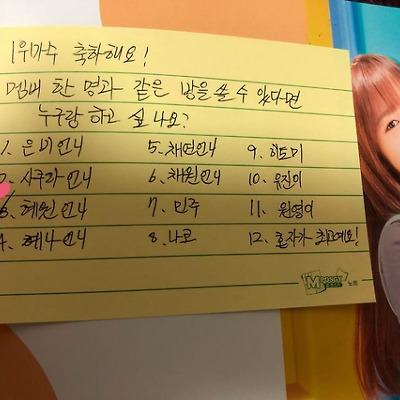 1위가수 축하해요!
멤버 한 명과 같은 방을 쓸 수 있다면
누구랑 하고 싶나요?
1. 은비언니 5. 채연언니 9. 히토미
2. 사쿠라언니 6. 채원언니 10. 유진이
3. 혜원언니 7. 민주 11. 원영이
4. 예나언니 8. 나코 12. 혼자가 최고예요!